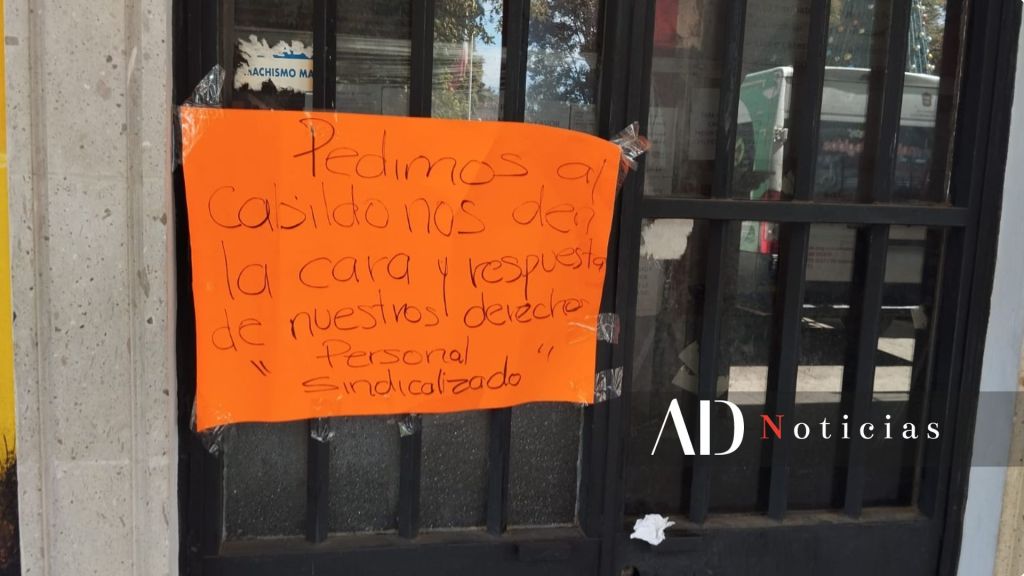 RACHISMO MA
Pedimos al
Cabildo nos den
la cara y respuesta
de nuestros derechos
" Personal "
sindicalizado
AD Noticias